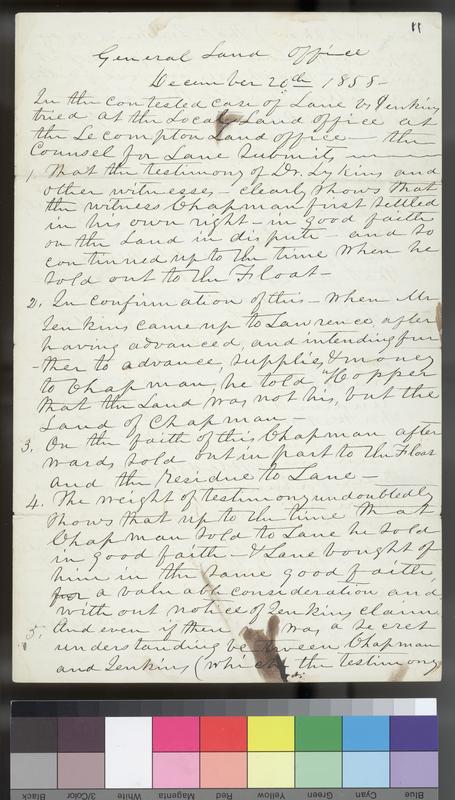 11
General Land Office
December 20th 1858-
In the contested case of Lane vs Jenkins
tried at the Local Land office at
the Lecompton Land office the
Counsel for Lane Submits
1. That the testimony of Dr. Lykins and
other witnesses - clearly shows that
the witness Chapman first settled
in his own right - in good faith
on the Land in dispute and so
continued up to the time when he
sold out to the Float -
2. In confirmation of this - when Mr
Jenkins came up to Lawrence after
having advanced, and intending fur
-ther to advance, supplies, & money
to Chapman, he told Hopper
that the Land was not his, but the
Land of Chapman -
3. On the faith of this Chapman after
wards sold out in part to the Float
and the residue to Lane -
4. The weight of testimony undoubtedly
shows that up to the time that
Chapman sold to Lane he sold
in good faith - & Lane bought of
him in the same good faith,
for a valuable consideration and
with out notice of Jenkins claim.
5. And even if there was a secret
understanding between Chapman
and Jenkins (which the testimony
Black
3/Color
White
Magenta
Red
Yellow
Green
Cyan
Blue